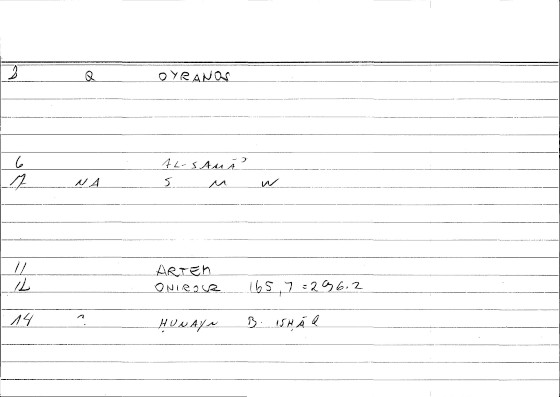 3 Q OYRANOS
6 AL-SAMĀʾ
7 NA S M W
11 ARTEM
12 ONIROCR 165,7 = 296.2
14 ḤUNAYN B. ISḤĀQ